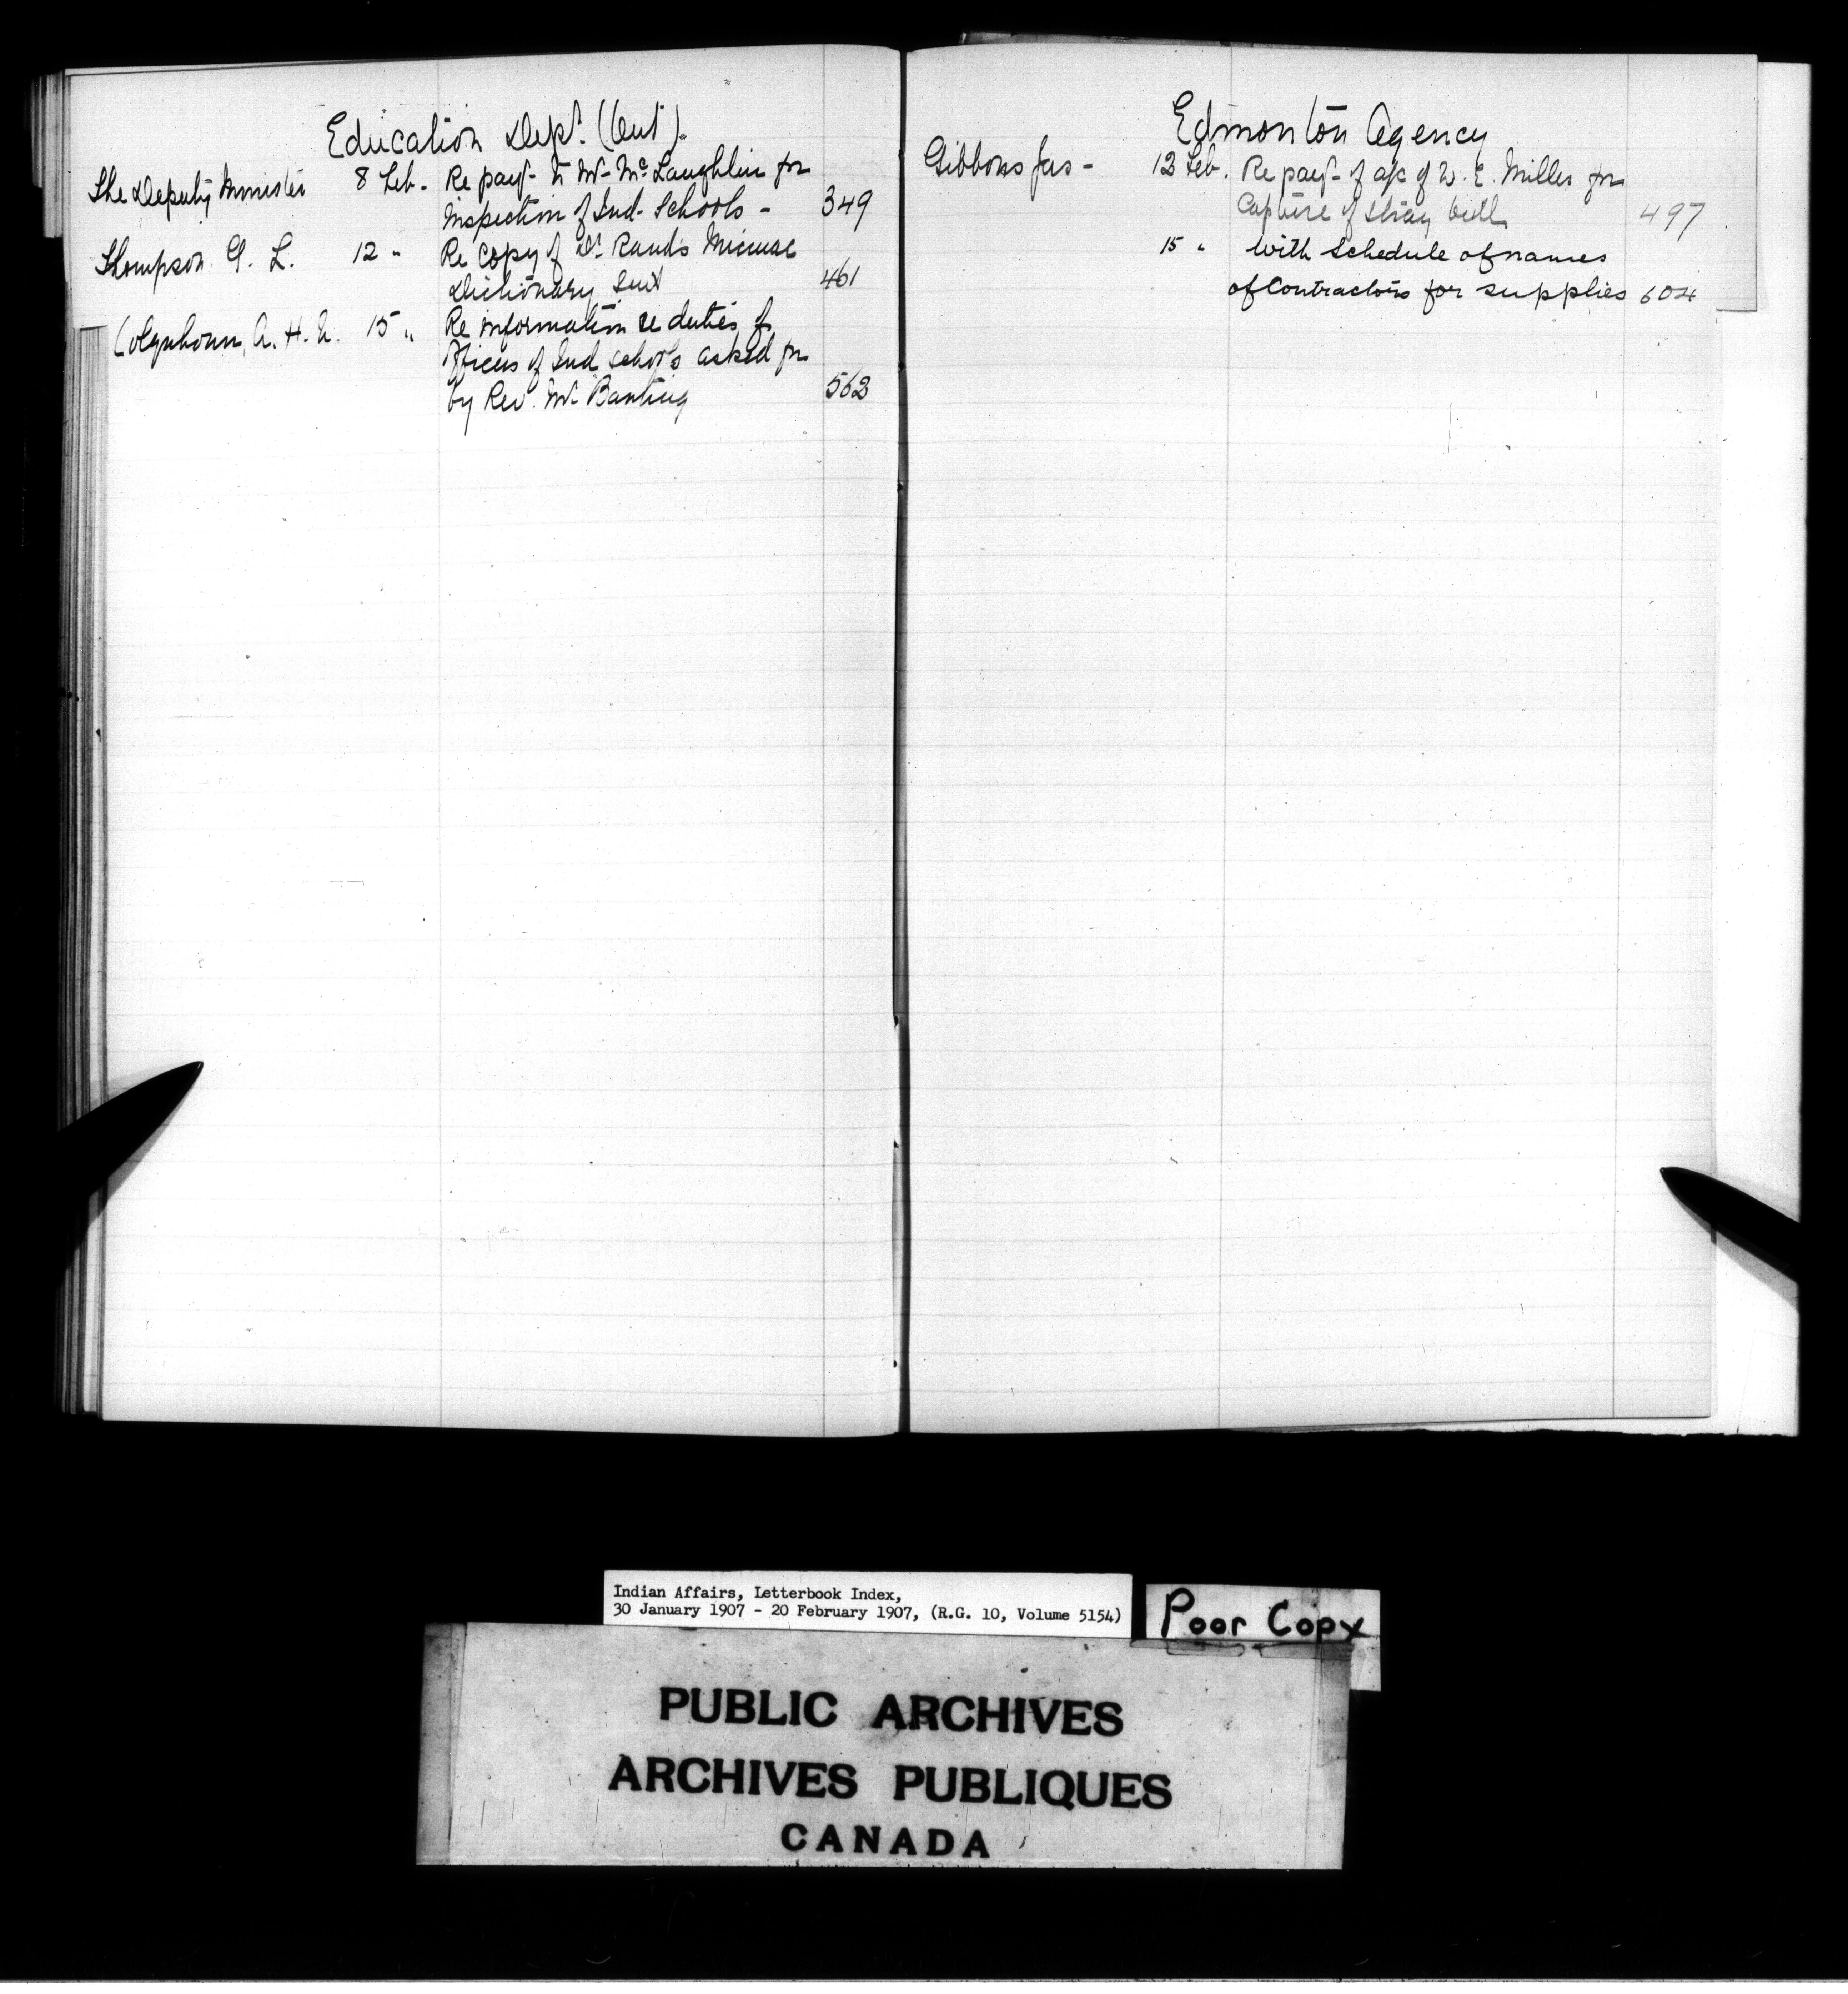 Education Dept. (Ont).
The Deputy Minister 8 Feb. Re payt. to Mr. McLaughlin for
inspection of Ind. Schools - 349
Thompson G. L. 12 " Re copy of Dr. Rand's Micmac
Dictionary sent 461
Colquhoun, A. H. U. 15 " Re information re duties of
officers of Ind schools asked for
by Rev. Mr. Banting 562
Edmonton Agency
Gibbons Jas - 12 Feb. Re payt. of a/c of W. E. Miller for
capture of stray bull 497
15 " With schedule of names
of Contractors for supplies 604
Indian Affairs, Letterbook Index,
30 January 1907 - 20 February 1907, (R.G. 10, Volume 5154)
Poor Copy
PUBLIC ARCHIVES
ARCHIVES PUBLIQUES
CANADA